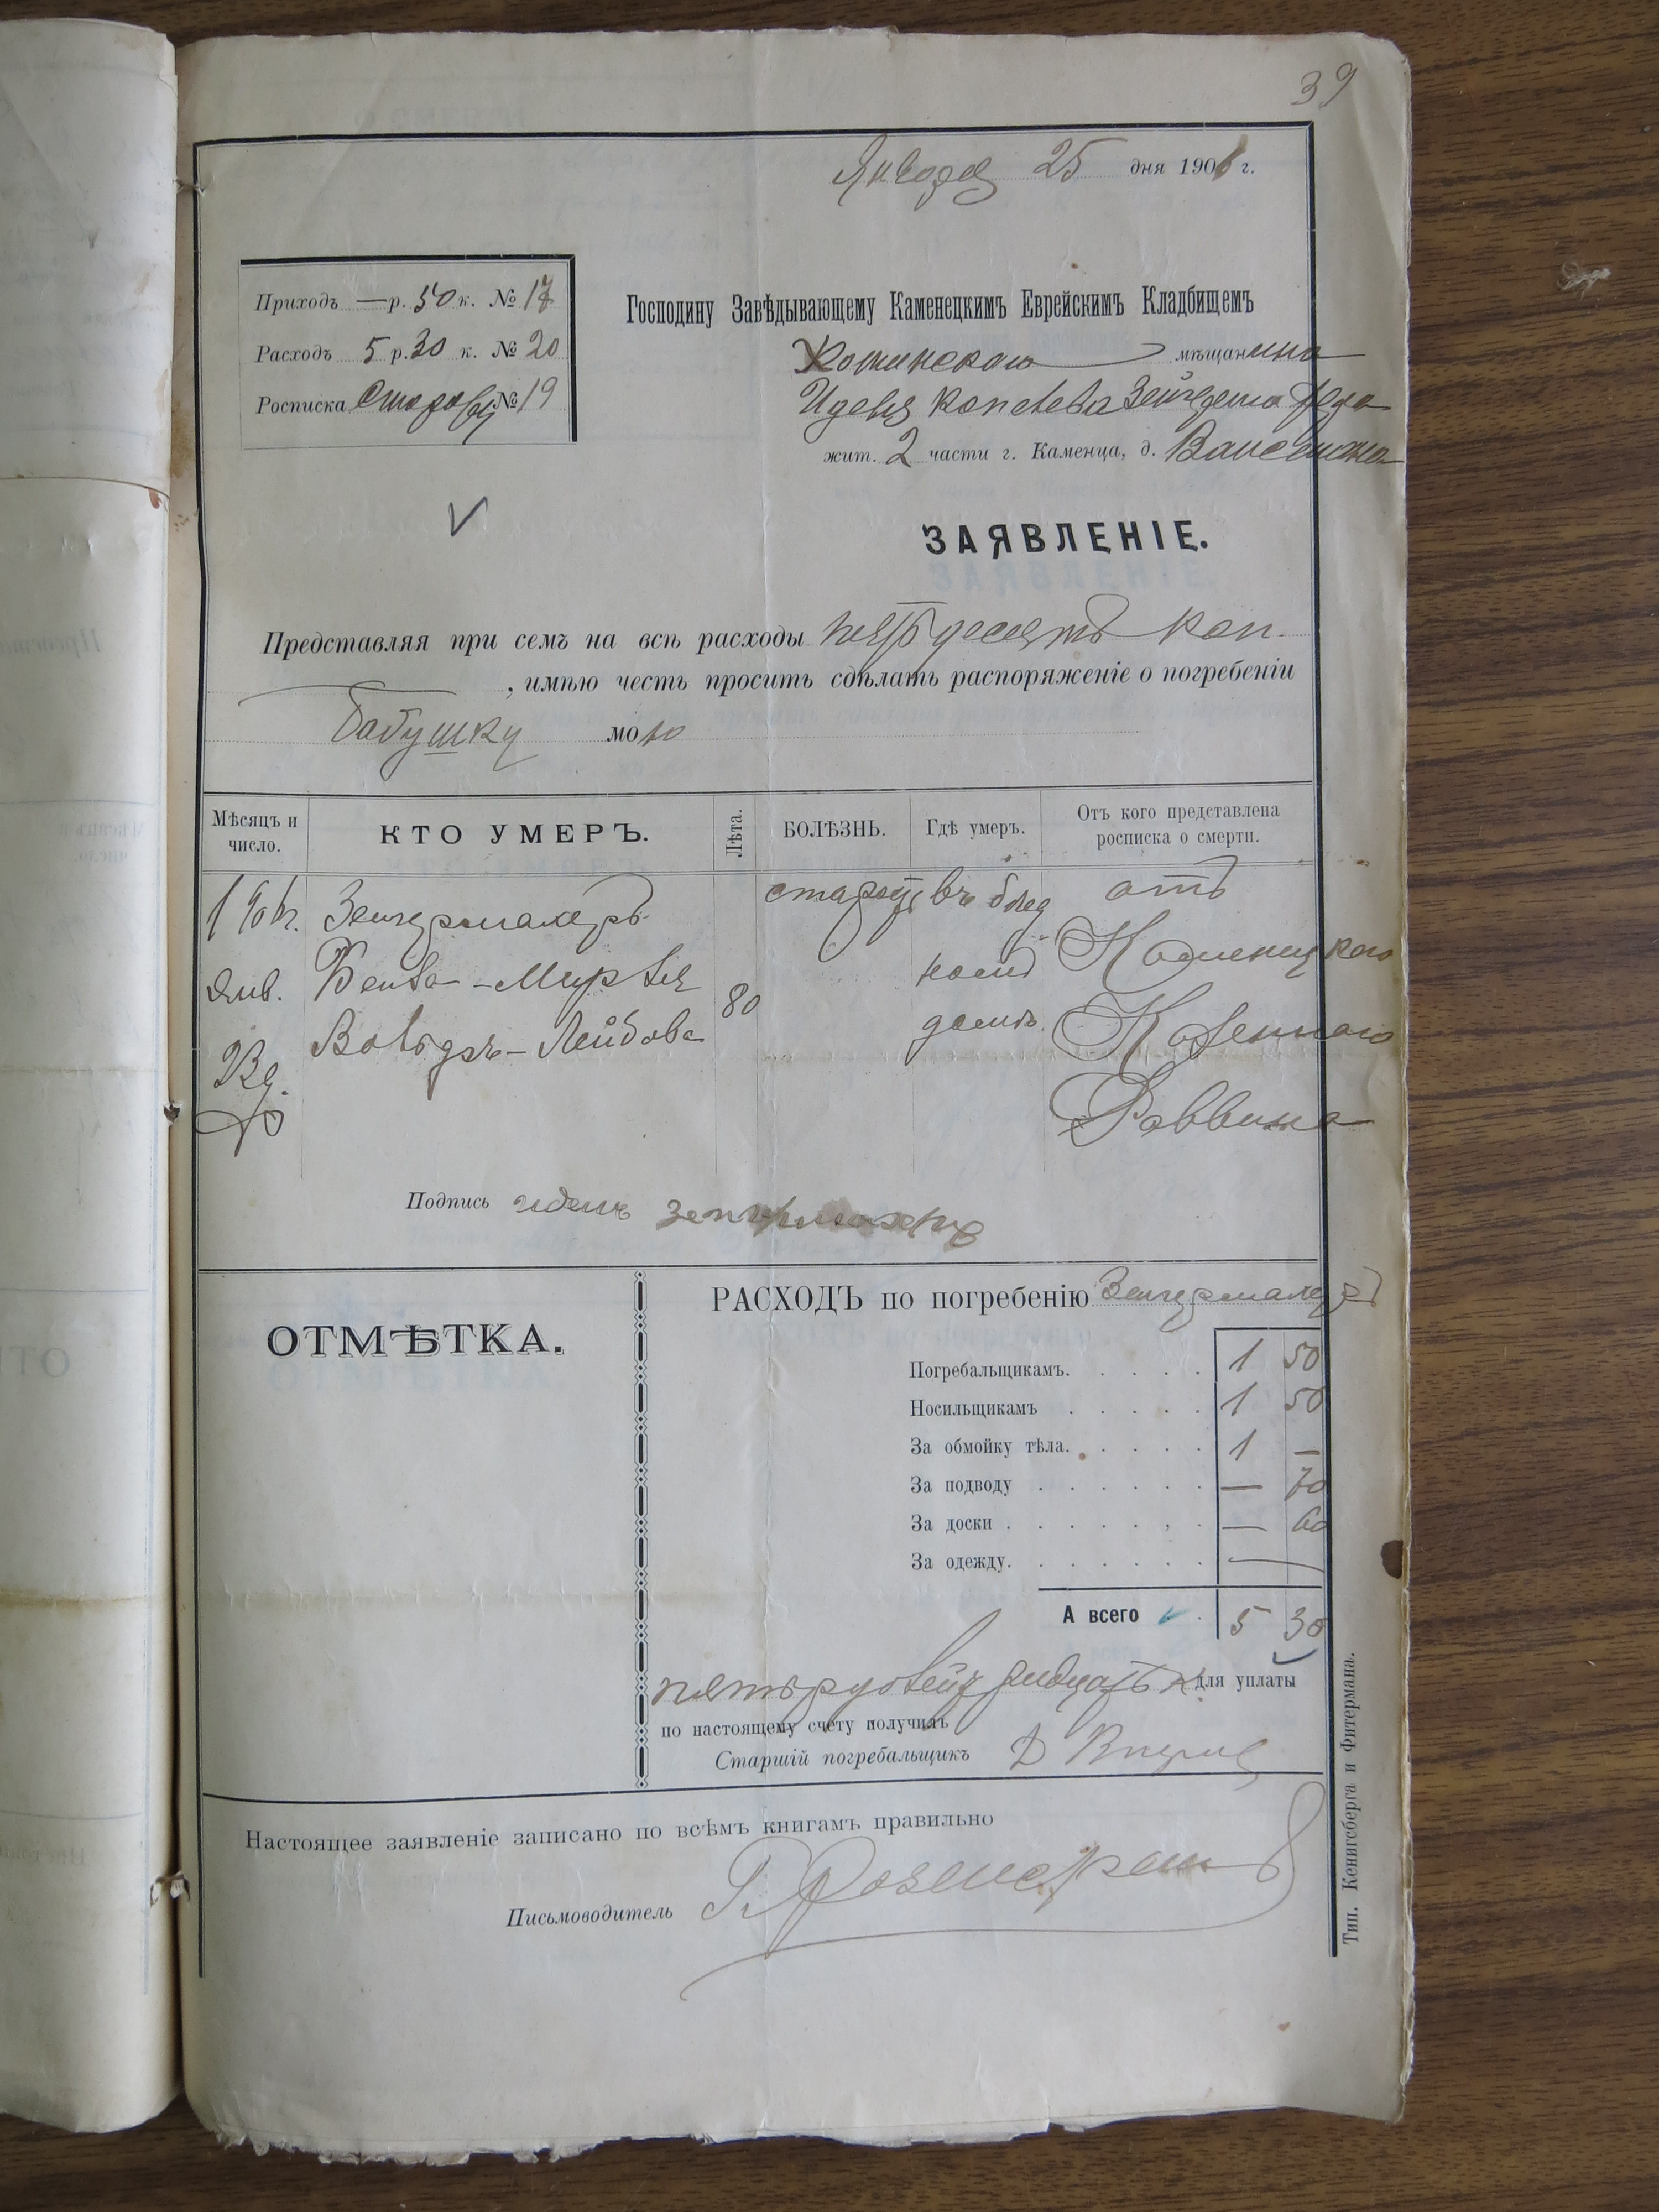 39
Января 25 дня 1906 г.
Приходъ — р. 50 к. № 17
Расходъ 5 р. 30 к. № 20
Росписка № 19
Господину Завѣдывающему Каменецкимъ Еврейскимъ Кладбищемъ
мѣщанина
жит. 2 части г. Каменца, д.
ЗАЯВЛЕНІЕ.
Представляя при семъ на всѣ расходы пятьдесятъ коп.
, имѣю честь просить сдѣлать распоряженіе о погребеніи
бабушку мою
Мѣсяцъ и число.
КТО УМЕРЪ.
Лѣта.
БОЛѢЗНЬ.
Гдѣ умеръ.
Отъ кого представлена росписка о смерти.
1906 г. Зейгермахеръ въ бѣд отъ
Янв. 80 номъ Каменецкаго
Лейбова домѣ. Казеннаго
Раввина
Подпись
ОТМѢТКА.
РАСХОДЪ по погребенію Зейгермахеръ
Погребальщикамъ. 1 50
Носильщикамъ 1 50
За обмойку тѣла. 1 —
За подводу — 70
За доски — 60
За одежду. —
А всего 5 30
пять рублей тридцать к для уплаты
по настоящему счету получилъ
Старшій погребальщикъ
Настоящее заявленіе записано по всѣмъ книгамъ правильно
Письмоводитель
Тип. Кенигсберга и Фитермана.